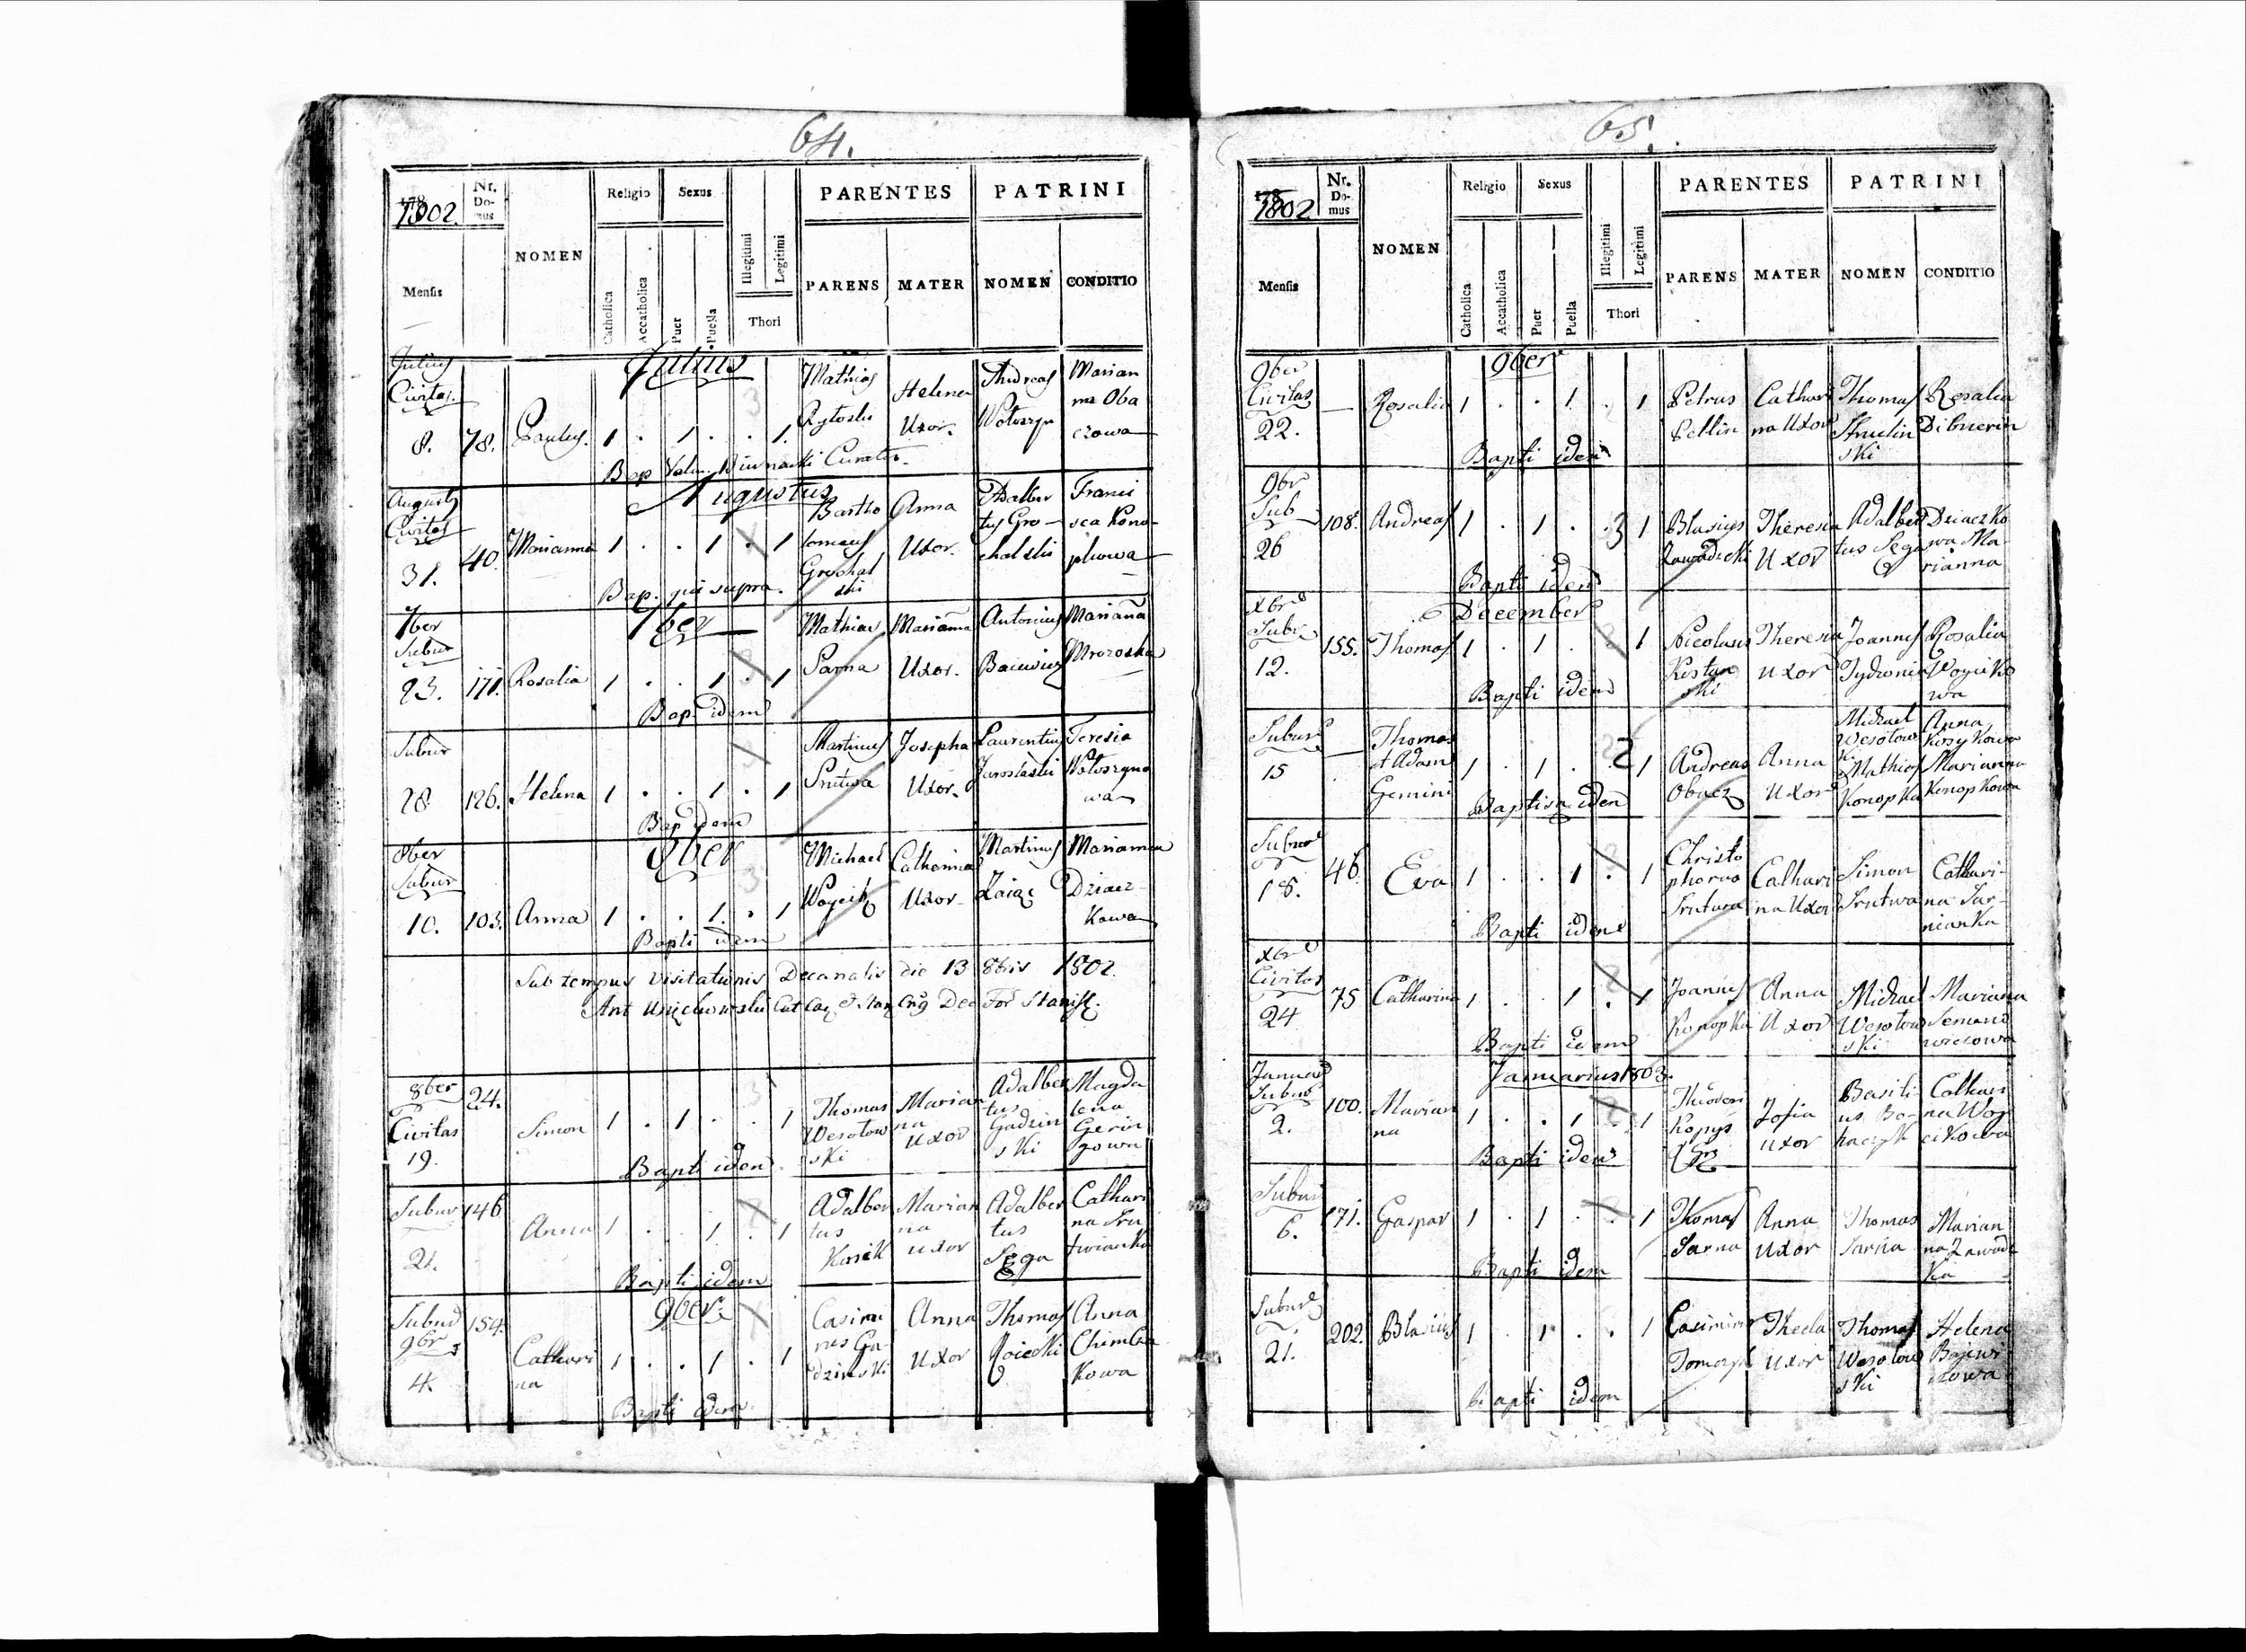 64.
1802.
Nr. Domus
NOMEN
Religio
Sexus
PARENTES
PATRINI
Mensis
Catholica
Accatholica
Puer
Puella
Illegitimi
Legitimi
Thori
PARENS
MATER
NOMEN
CONDITIO
Julius
Julius Civitas 8. 78. Paulus. 1 . 1 . . 1. Mathias Helena Uxor. Andreas Marianna Oba
czowa
Bap Curator.
Augustus
Civitas 31. 40. Marianna 1 . . 1 . 1 Bartho
lomeus Grochal
ski Anna Uxor. Adalber
tus Gro-
chalski Franci
sca Kono-
pkowa
Bap. qui supra.
7ber
7ber Subur 23. 171. Rosalia 1 . . 1 . 1 Mathias Sarna Marianna Uxor. Antonius Marianna Mrozoska
Bap idem
Subur 28. 126. Helena 1 . . 1 . 1 Martinus Srutwa Josepha Uxor. Laurentius Jaroslaski Teresia Wołoszyno
wa
Bap idem
8ber
8ber Subur 10. 103. Anna 1 . . 1 . 1 Michael Woycik Catharina Uxor. Martinus Zaiąc Marianna Dziacz-
kowa
Bapti idem
Sub tempus visitationis Decanalis die 13 8bris 1802.
8ber Civitas 19. 24. Simon 1 . 1 . . 1 Thomas Wesołow
ski Marian
na Uxor Adalber
tus Gadzin
ski Magda
lena Gerin
gowa
Bapti idem
Subur 21. 146 Anna 1 . . 1 . 1 Adalber
tus Kosik Marian
na uxor Adalber
tus Sęga Cathari
na Sru
twianka
Bapti idem
9ber
Subur 9br 4. 154. Cathari
na 1 . . 1 . 1 Casimi
rus Ga-
dzinski Anna Uxor Thomas Anna
kowa
Bapti idem
65.
1802
Nr. Domus
NOMEN
Religio
Sexus
PARENTES
PATRINI
Mensis
Catholica
Accatholica
Puer
Puella
Illegitimi
Legitimi
Thori
PARENS
MATER
NOMEN
CONDITIO
9ber
9ber Civitas 22. — Rosalia 1 . . 1 . 1 Petrus Pellin Cathari
na Uxor Thomas
ski Rosalia
Bapti idem
9br Sub 26 108. Andreas 1 . 1 . . 3 1 Blasius Zawadzki Theresia Uxor Adalber
tus Sęga Dziaczko
wa Ma
rianna
Bapti idem
December
Xbr Subur 12. 155. Thomas 1 . 1 . 1 Nicolaus Kostan
ski Theresia uxor Joannes Rosalia Woyciko
wa
Bapti idem
Subur 15 — Thomas et Adam Gemini 1 . 1 . 2 1 Andreas Obacz Anna Uxor Michael Wesołows
ki Mathias Konopka Anna Kosykowa Marianna Konopkowa
Baptisa idem
Subur 18. 46 Eva 1 . . 1 . 1 Christo
phorus Srutwa Cathari
na Uxor Simon Srutwa Cathari-
na Sar-
nianka
Bapti idem
Xbr Civitas 24 75 Catharina 1 . . 1 . 1 Joannes Konopka Anna Uxor Michael Wesołow
ski Marianna
Bapti idem
Januarius 1803.
Januar Subur 2. 100. Marian
na 1 . . 1 . 1 Theodor Kopys Zofia uxor Basili
us Cathari
na Woy
cikowa
Bapti idem
Subur 6. 171. Gaspar 1 . 1 . . 1 Thomas Sarna Anna Uxor Thomas Sarna Marian
na Zawadz
ka
Bapti idem
Subur 21. 202. Blasius 1 . 1 . . 1 Casimirus Tomczyk Thecla Uxor Thomas Wesołow
ski Helena
Bapti idem